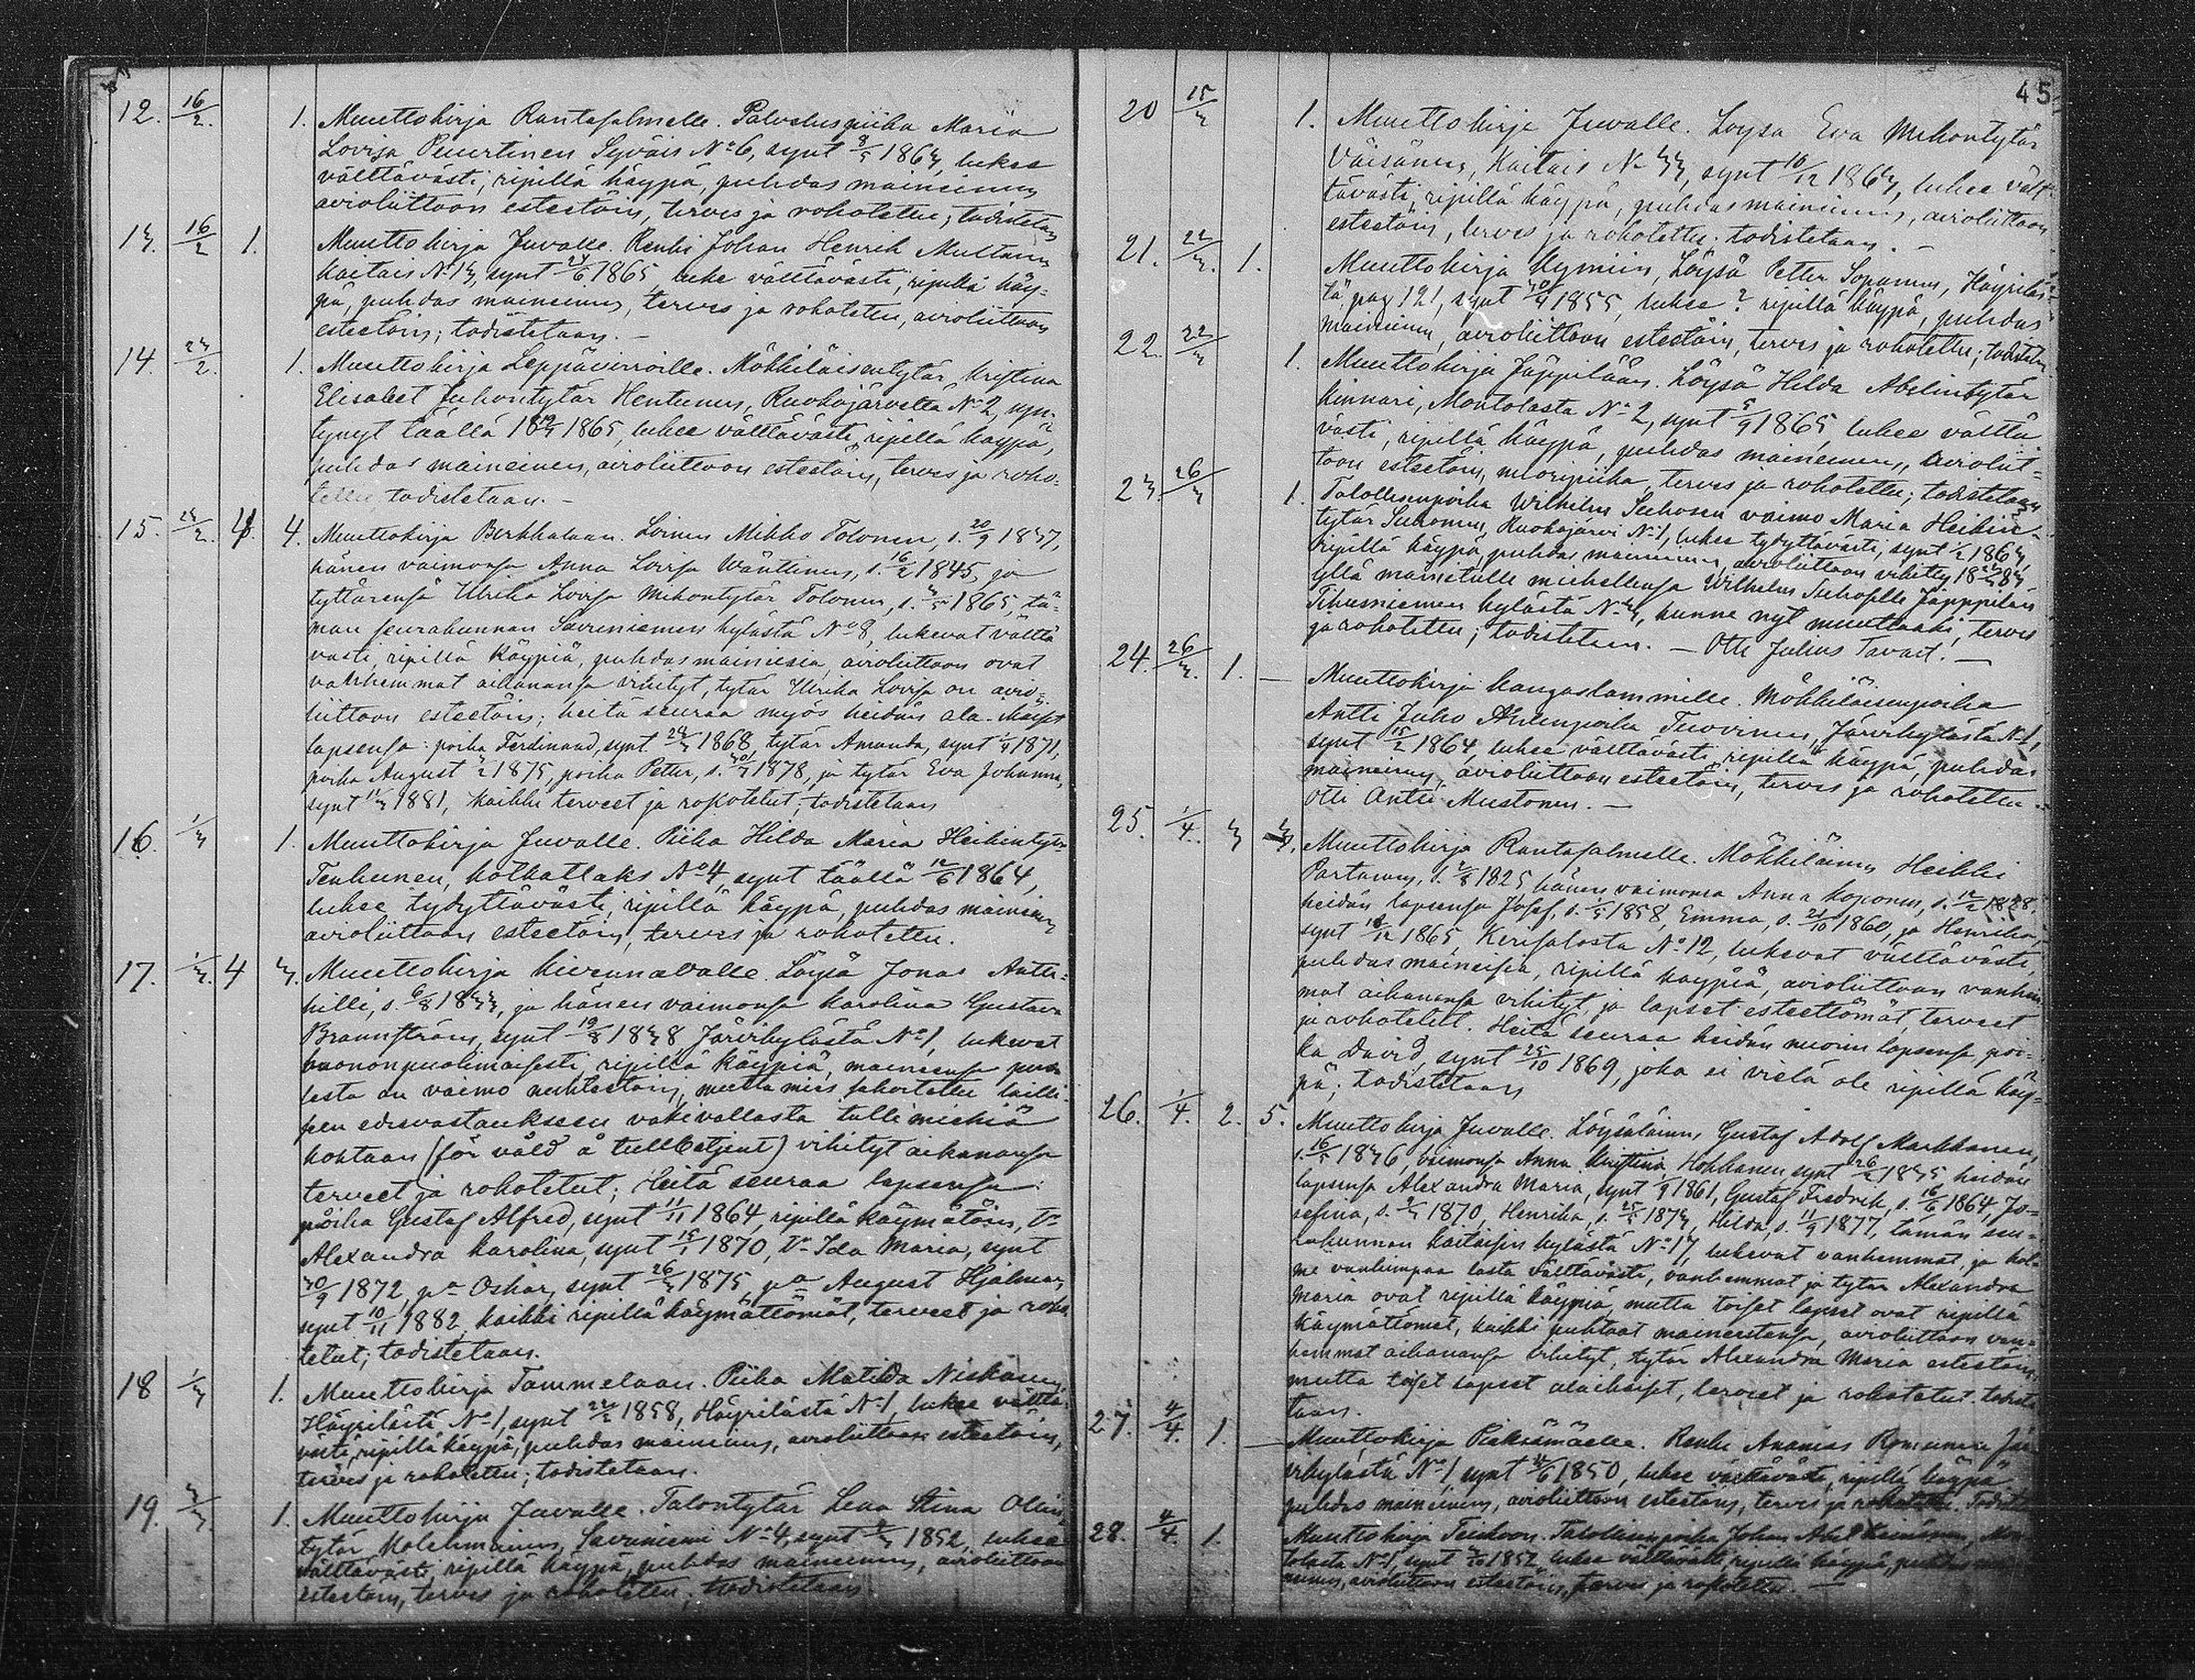 12. 16/2. 1. Muuttokirja Rantasalmelle. Palveluspiika Maria
Lovisa Puurtinen Syväis No 6, synt 8/5 1863, lukee
välttävästi, ripillä käypä, puhdas maineinen,
avioliittoon esteetöin, terves ja rokotettu; todistetaan
13. 16/2 1. Muuttokirja Juvalle. Renki Johan Henrik Multanen
Kaitais No 13, synt 24/6 1865, luke välttävästi, ripillä käy-
pä, puhdas maineinen, terves ja rokotettu, avioliittoon
esteetöin; todistetaan. —
14. 23/2. 1. Muuttokirja Leppävirroille. Mökkiläisentytär Kristina
Elisabet Juhontytär Hentunen, Ruokojärveltä No 2, syn-
tynyt täällä 1865, lukee välttävästi, ripillä käypä,
puhdas maineinen, avioliittoon esteetöin, terves ja roko-
tettu todistetaan. —
15. 23/2. 4. 4. Muuttokirja Berkkalaan. Loinen Mikko Tolonen, s. 20/9 1837,
hänen vaimonsa Anna Lovisa Wänttinen, s. 16/2 1845, ja
tyttärensä Ulrika Lovisa Mikontytär Tolonen, s. 3/5 1865, tä-
män seurakunnan Savuniemen kylästä No 8, lukevat välttä
västi, ripillä käypiä, puhdasmaineisia, avioliittoon ovat
vanhemmat aikanansa vihityt, tytär Ulrika Lovisa on avio-
liittoon esteetöin; heitä seuraa myös heidän ala-ikäiset
lapsensa: poika Ferdinand, synt 28/3 1868, tytär Amanda, synt 1/4 1871,
poika August 3/2 1875, poika Petter, s. 30/3 1878, ja tytär Eva Johanna,
synt 11/3 1881, kaikki terveet ja rokotetut, todistetaan
16. 1/3 1. Muuttokirja Juvalle. Piika Hilda Maria Heikintytär
Tenhunen, Kölkatlaks No 4, synt täällä 12/6 1864,
lukee tydyttävästi, ripillä käypä, puhdas maineinen
avioliittoon esteetöin, terves ja rokotettu.
17. 1/3. 4 3. Muuttokirja Kivennavalle. Löysä Jonas Antti-
killi, s. 6/8 1833, ja hänen vaimonsa Karolina Gustava
Brannström, synt 19/8 1838 Järvikylästä No 1, lukevat
huononpuolimaisesti, ripillä käypiä, maineensa puo-
lesta on vaimo nuhteetoin, mutta mies sakoitettu lailli-
sen edesvastauksen väkivallasta tullimiehiä
kohtaan (för våld å tullbetjent) vihityt aikanansa
terveet ja rokotetut; Heitä seuraa lapsensa:
poika Gustaf Alfred, synt 11/11 1864, ripillä käymätöin, tr
Alexandra Karolina, synt 15/1 1870, tr Ida Maria, synt
30/9 1872, pa Oskar, synt 26/3 1875, pa August Hjalmar,
synt 10/11 1882, kaikki ripillä käymättömät, terveet ja roko
tetut; todistetaan.
18 1/3 1. Muuttokirja Tammelaan. Piika Matilda Niskanen,
Häyrilästä No 1, synt 22/2 1858, Häyrilästä No 1, lukee välttä-
västi, ripillä käypä, puhdas maineinen, avioliittoon esteetöin,
terves ja rokotettu; todistetaan.
19. 3/3. 1. Muuttokirja Juvalle. Talontytär Lena Stina Olin
tytär Kolehmainen, Savuniemi No 4, synt 1852, lukee
välttävästi, ripillä käypä, puhdas maineinen, avioliittoon
esteetöin, terves ja rokotettu, todistetaan
45
20 15/3 1. Muuttokirja Juvalle. Loysa Eva Mikontytär
Väisänen, Kaitais No 33, synt 10/12 1863, lukee vält-
tävästi, ripillä käypä, puhdasmaineinen, avioliittoon
esteetöin, terves ja rokotettu; todistetaan. —
21. 22/3. 1. Muuttokirja Kymiin, Löysä Petter Soponen, Häyriläs-
tä pag 121, synt 30/4 1855, lukee? ripillä käypä, puhdas
maineinen, avioliittoon esteetöin, terves ja rokotettu; todistetaan
22. 22/3 1. Muuttokirja Jäppilään. Löysä Hilda Abelintytär
Kinnari, Montolasta No 2, synt 5/9 1865, lukee välttä
västi, ripillä käypä, puhdas maineinen, avioliit-
toon esteetöin, nuoripiika, terves ja rokotettu; todistetaan
23. 26/3 1. Talollisenpoika Wilhelm Suhosen vaimo Maria Heikin-
tytär Suhonen, Ruokojärvi No 1, lukee tydyttävästi, synt 1/2 1863,
ripillä käypä, puhdas maineinen, avioliittoon vihitty
yllä mainitulle miehellensä Wilhelm Suhoselle Jäppilän
Tihusniemen kylästä No 3, kunne nyt muuttaaki, terves
ja rokotettu; todistetaan. — Otti Julius Tavast. —
24. 26/3. 1. — Muuttokirja Kangaslammille. Mökkiläisenpoika
Antti Juho Ahlenpoika Tuovinen, Järvikylästä No 1,
synt 15/2 1864, lukee välttävästi, ripillä käypä, puhdas
maineinen, avioliittoon esteetöin, terves ja rokotettu. —
Otti Antti Mustonen. —
25. 1/4. 3 3. Muuttokirja Rantasalmelle. Mökkiläinen Heikki
Partanen, s. 2/8 1825, hänen vaimonsa Anna Koponen, s. 12/2 1828,
heidän lapsensa Josef, s. 1/5 1858, Emma, s. 21/10 1860, ja Henrika,
synt 18/12 1865, Kerisalosta No 12, lukevat välttävästi,
puhdas maineisia, ripillä käypiä, avioliittoon vanhem-
mat aikanansa vihityt, ja lapset esteettömät, terveet
ja rokotetut. Heitä seuraa heidän nuorin lapsensa, poi-
ka David, synt 25/10 1869, joka ei vielä ole ripillä käy-
pä; todistetaan
26. 1/4. 2. 5. Muuttokirja Juvalle. Löysäläinen Gustaf Adolf Markkanen,
s. 16/5 1836, vaimonsa Anna Kristina Hokkanen synt 26/2 1835 heidän
lapsensa Alexandra Maria, synt 1/9 1861, Gustaf Fredrik, s. 16/6 1864, Jo-
sefina, s. 9/3 1870, Henrika, s. 25/5 1873, Hilda, s. 11/9 1877, tämän seu-
rakunnan Kaitaisen kylästä No 17, lukevat vanhemmat, ja kol-
me vanhimpaa lasta välttävästi, vanhemmat ja tytär Alexandra
Maria ovat ripillä käypiä, mutta toiset lapset ovat ripillä
käymättömät, kaikki puhtaat maineestansa, avioliittoon van-
hemmat aikanansa vihityt, tytär Alexandra Maria esteetöin,
mutta toiset lapset alaikäiset, terveet ja rokotetut. todiste
taan.
27. 4/4. 1. — Muuttokirja Pieksämäelle. Renki Ananias Romunen Jär
vikylästä No 1, synt 1850, lukee välttävästi, ripillä käypä
puhdas maineinen, avioliittoon esteetöin, terves ja rokotettu.
28. 4/4 1. Muuttokirja Teiskoon. Talollisenpoika Johan Abel
No 1, synt 1852, lukee välttävästi, ripillä käypä,
avioliittoon esteetöin, terves ja rokotettu. —